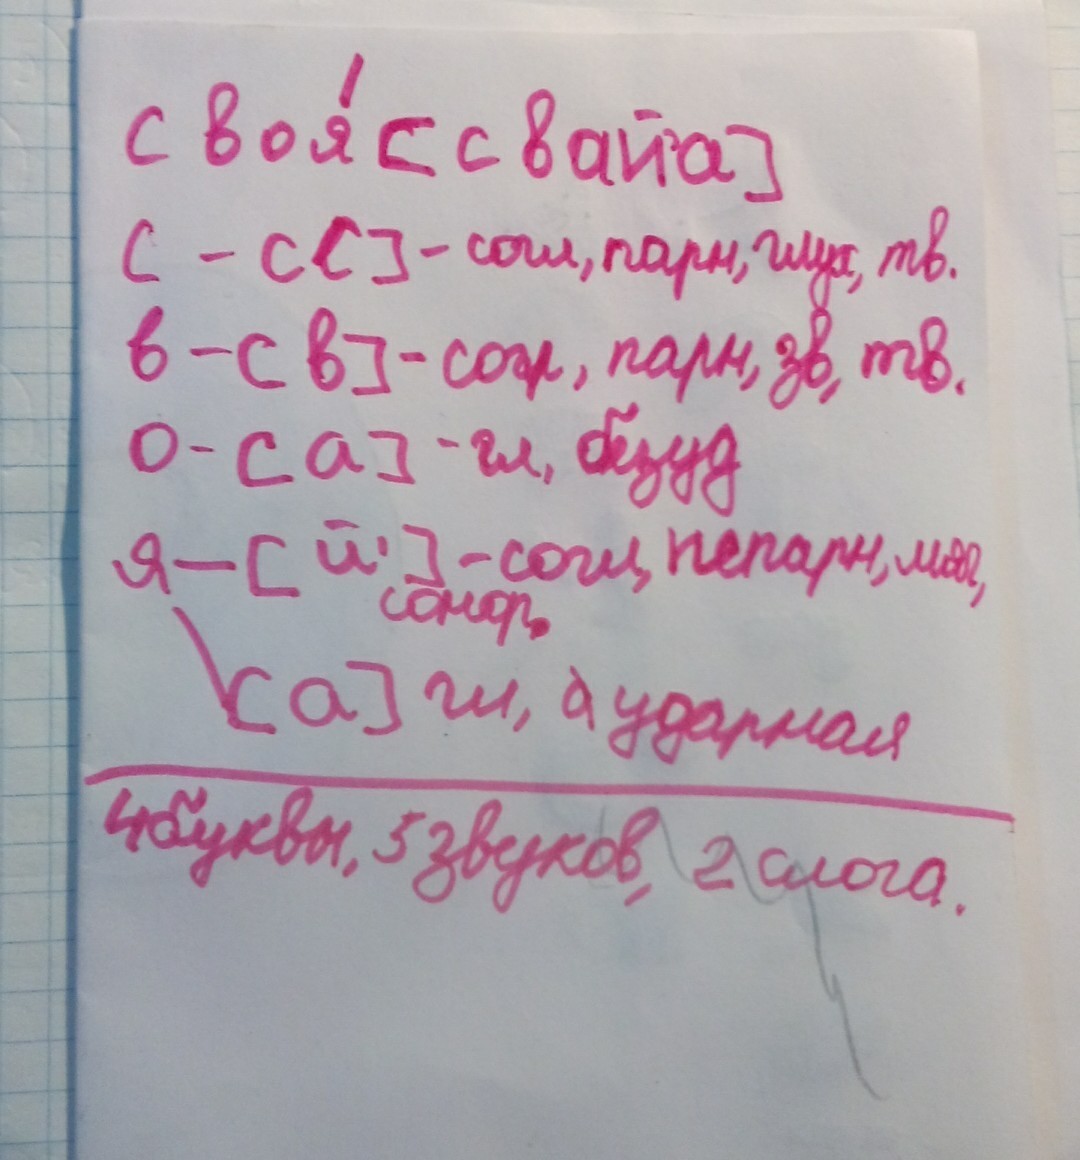 своя́ [свай'а]
с - с[с] - согл, парн, глух, тв.
в - [в] - согл, парн, зв, тв.
о - [а] - гл, безуд
я - [й'] - согл, непарн, мяг,
сонор.
[а] гл, ударная
4 буквы, 5 звуков, 2 слога.